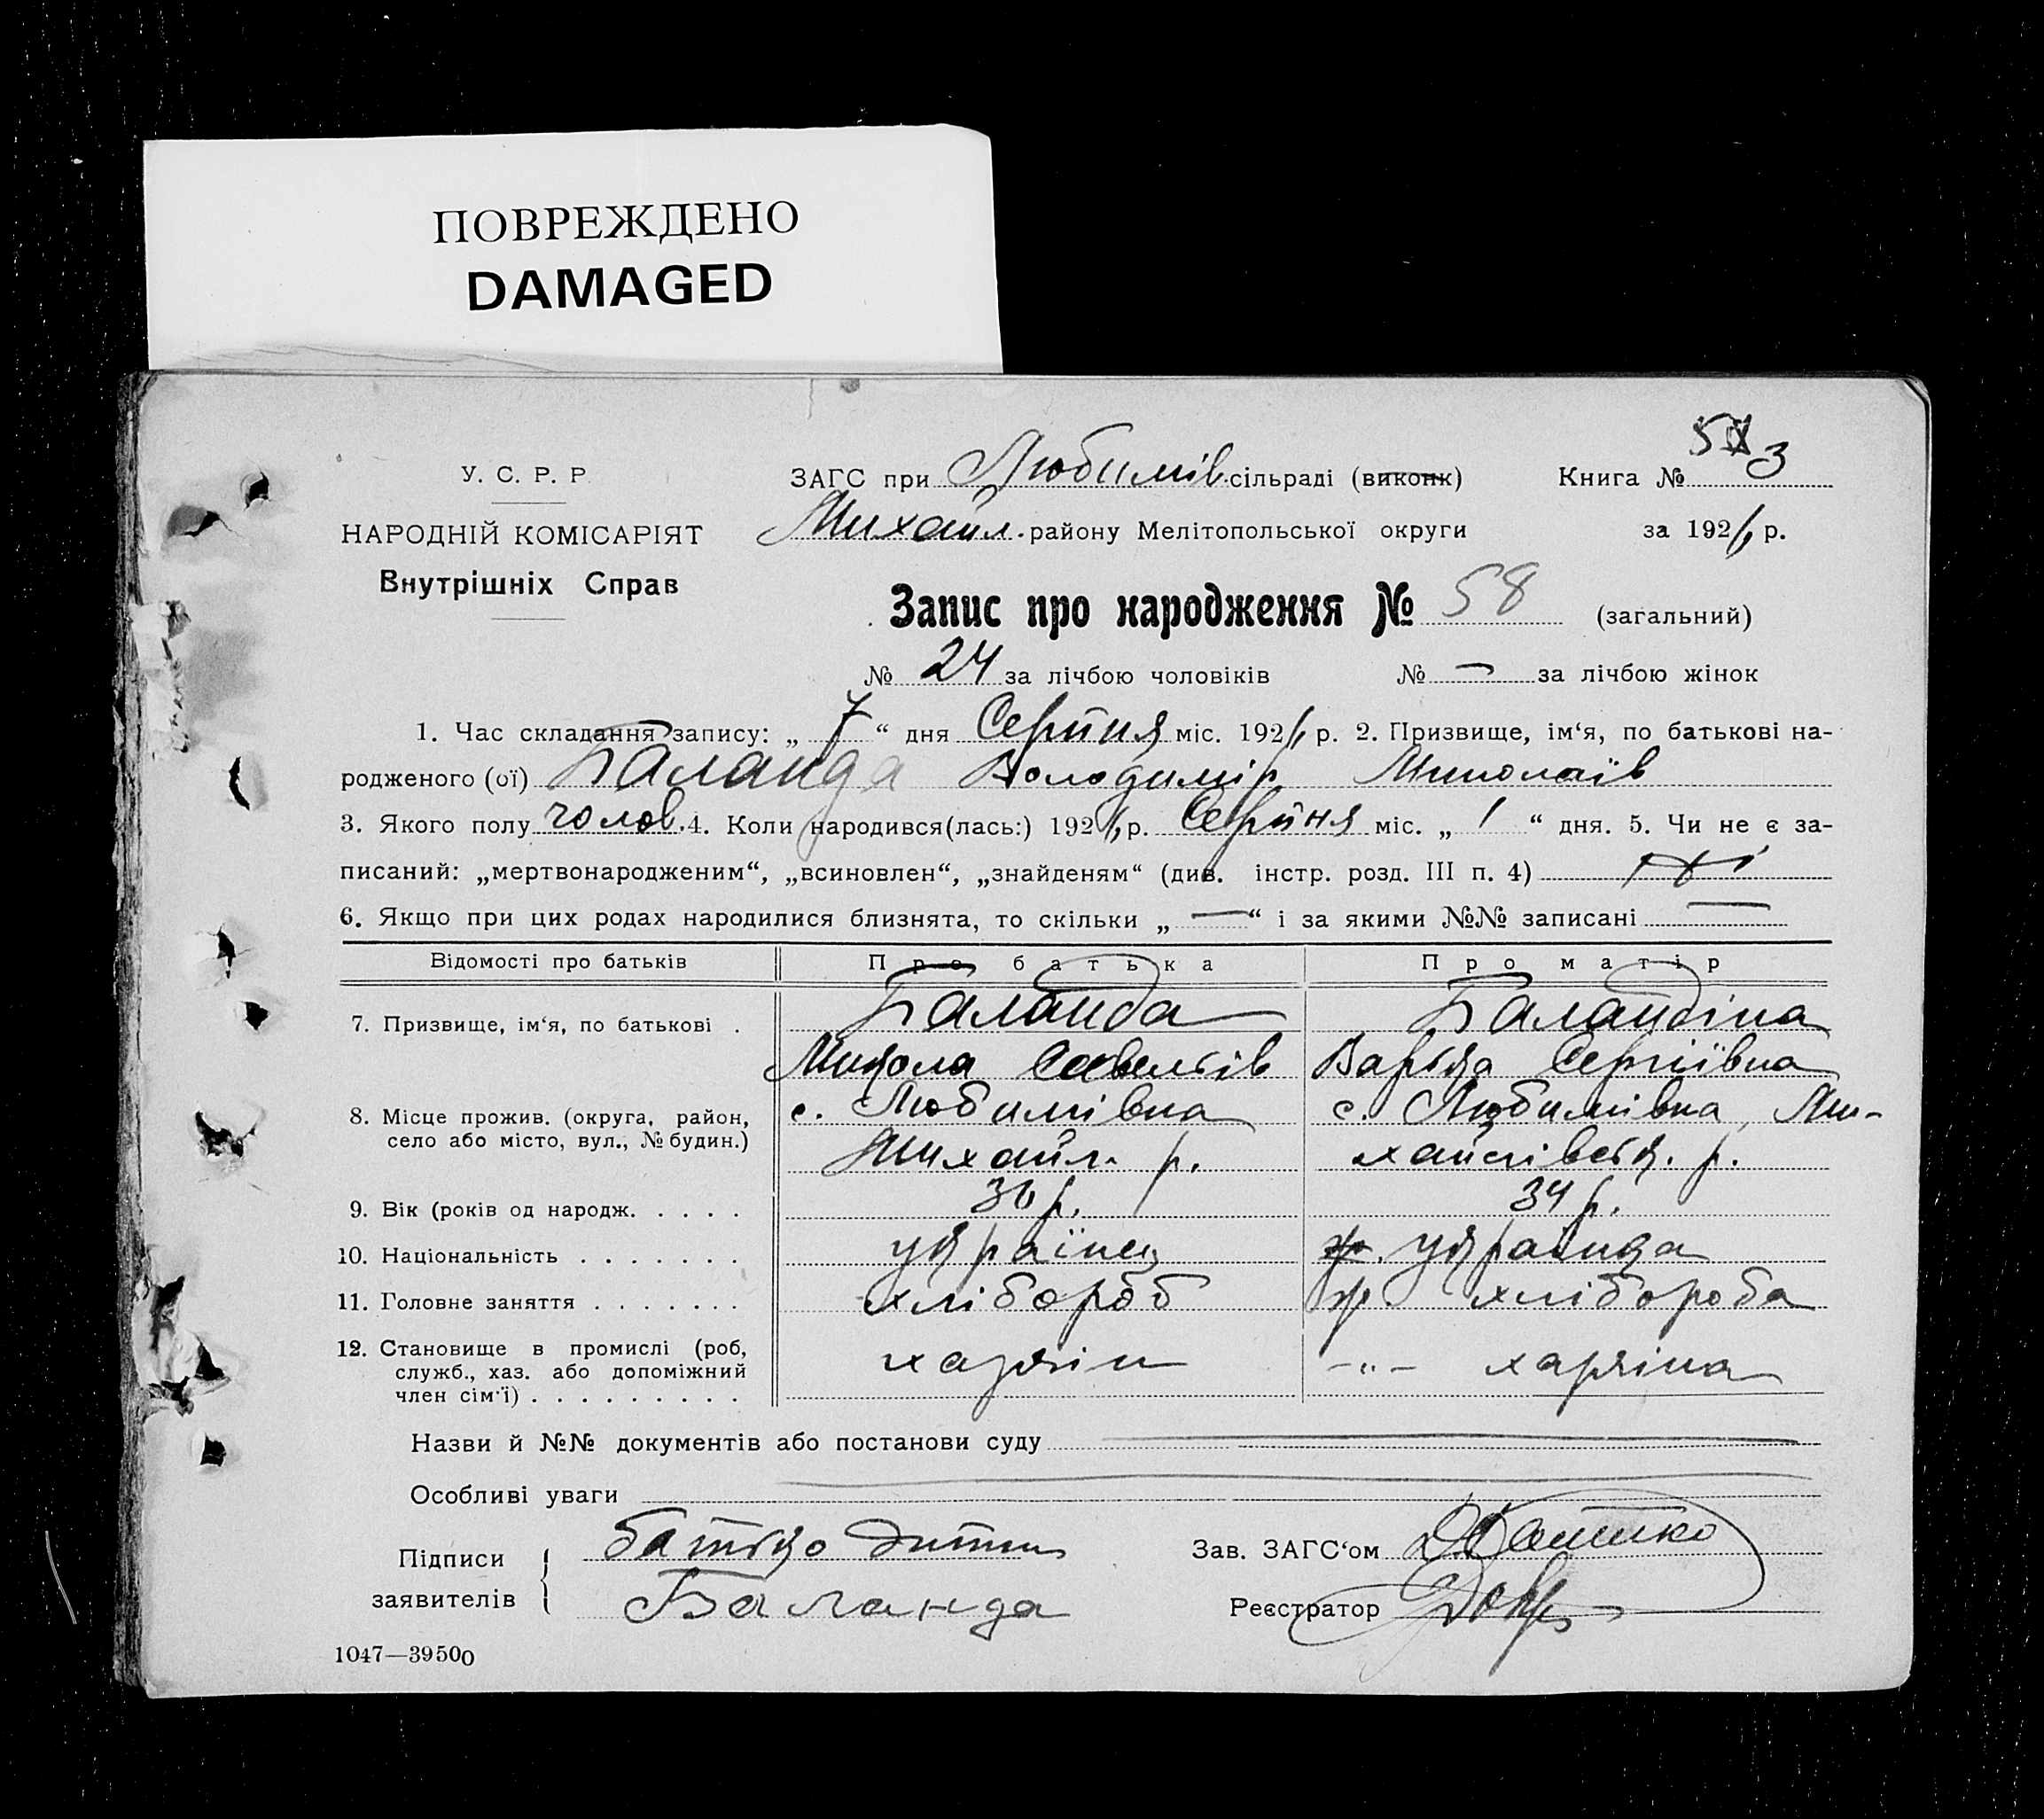 ПОВРЕЖДЕНО
DAMAGED
У. С. Р. Р
НАРОДНІЙ КОМІСАРІЯТ
Внутрішніх Справ
ЗАГС при Любимів. сільраді (виконк)
Михайл. району Мелітопольської округи
Книга № 3
за 1926 р.
Запис про народження № 58 (загальний)
№ 24 за лічбою чоловіків № — за лічбою жінок
1. Час складання запису: „ 7 “ дня Серпня міс. 1926 р. 2. Призвище, ім‘я, по батькові на-
родженого (ої) Баланда Володимір Миколаїв
3. Якого полу чолов. 4. Коли народився(лась:) 1926 р. Серпня міс. „ 1 “ дня. 5. Чи не є за-
писаний: „мертвонародженим“, „всиновлен“, „знайденям“ (див. інстр. розд. III п. 4) ні
6. Якщо при цих родах народилися близнята, то скільки „ — “ і за якими №№ записані —
Відомості про батьків Про батька Про матір
7. Призвище, ім‘я, по батькові . Баланда Баландіна
Микола Савелєів Варька Сергіївна
8. Місце прожив. (округа, район, с. Любимівка с. Любимівка, Ми-
село або місто, вул., № будин.) Михайл. р. хайлівськ. р.
9. Вік (років од народж. . . . . 36 р. 34 р.
10. Національність . . . . . . . українец українка
11. Головне заняття . . . . . . . хлібороб хлібороба
12. Становище в промислі (роб,
служб., хаз. або допоміжний хазяін -"- хазяіна
член сім‘ї) . . . . . . . . .
Назви й №№ документів або постанови суду
Особливі уваги
Підписи заявителів батько дитини
Баланда
Зав. ЗАГС‘ом
Реєстратор
1047—39500